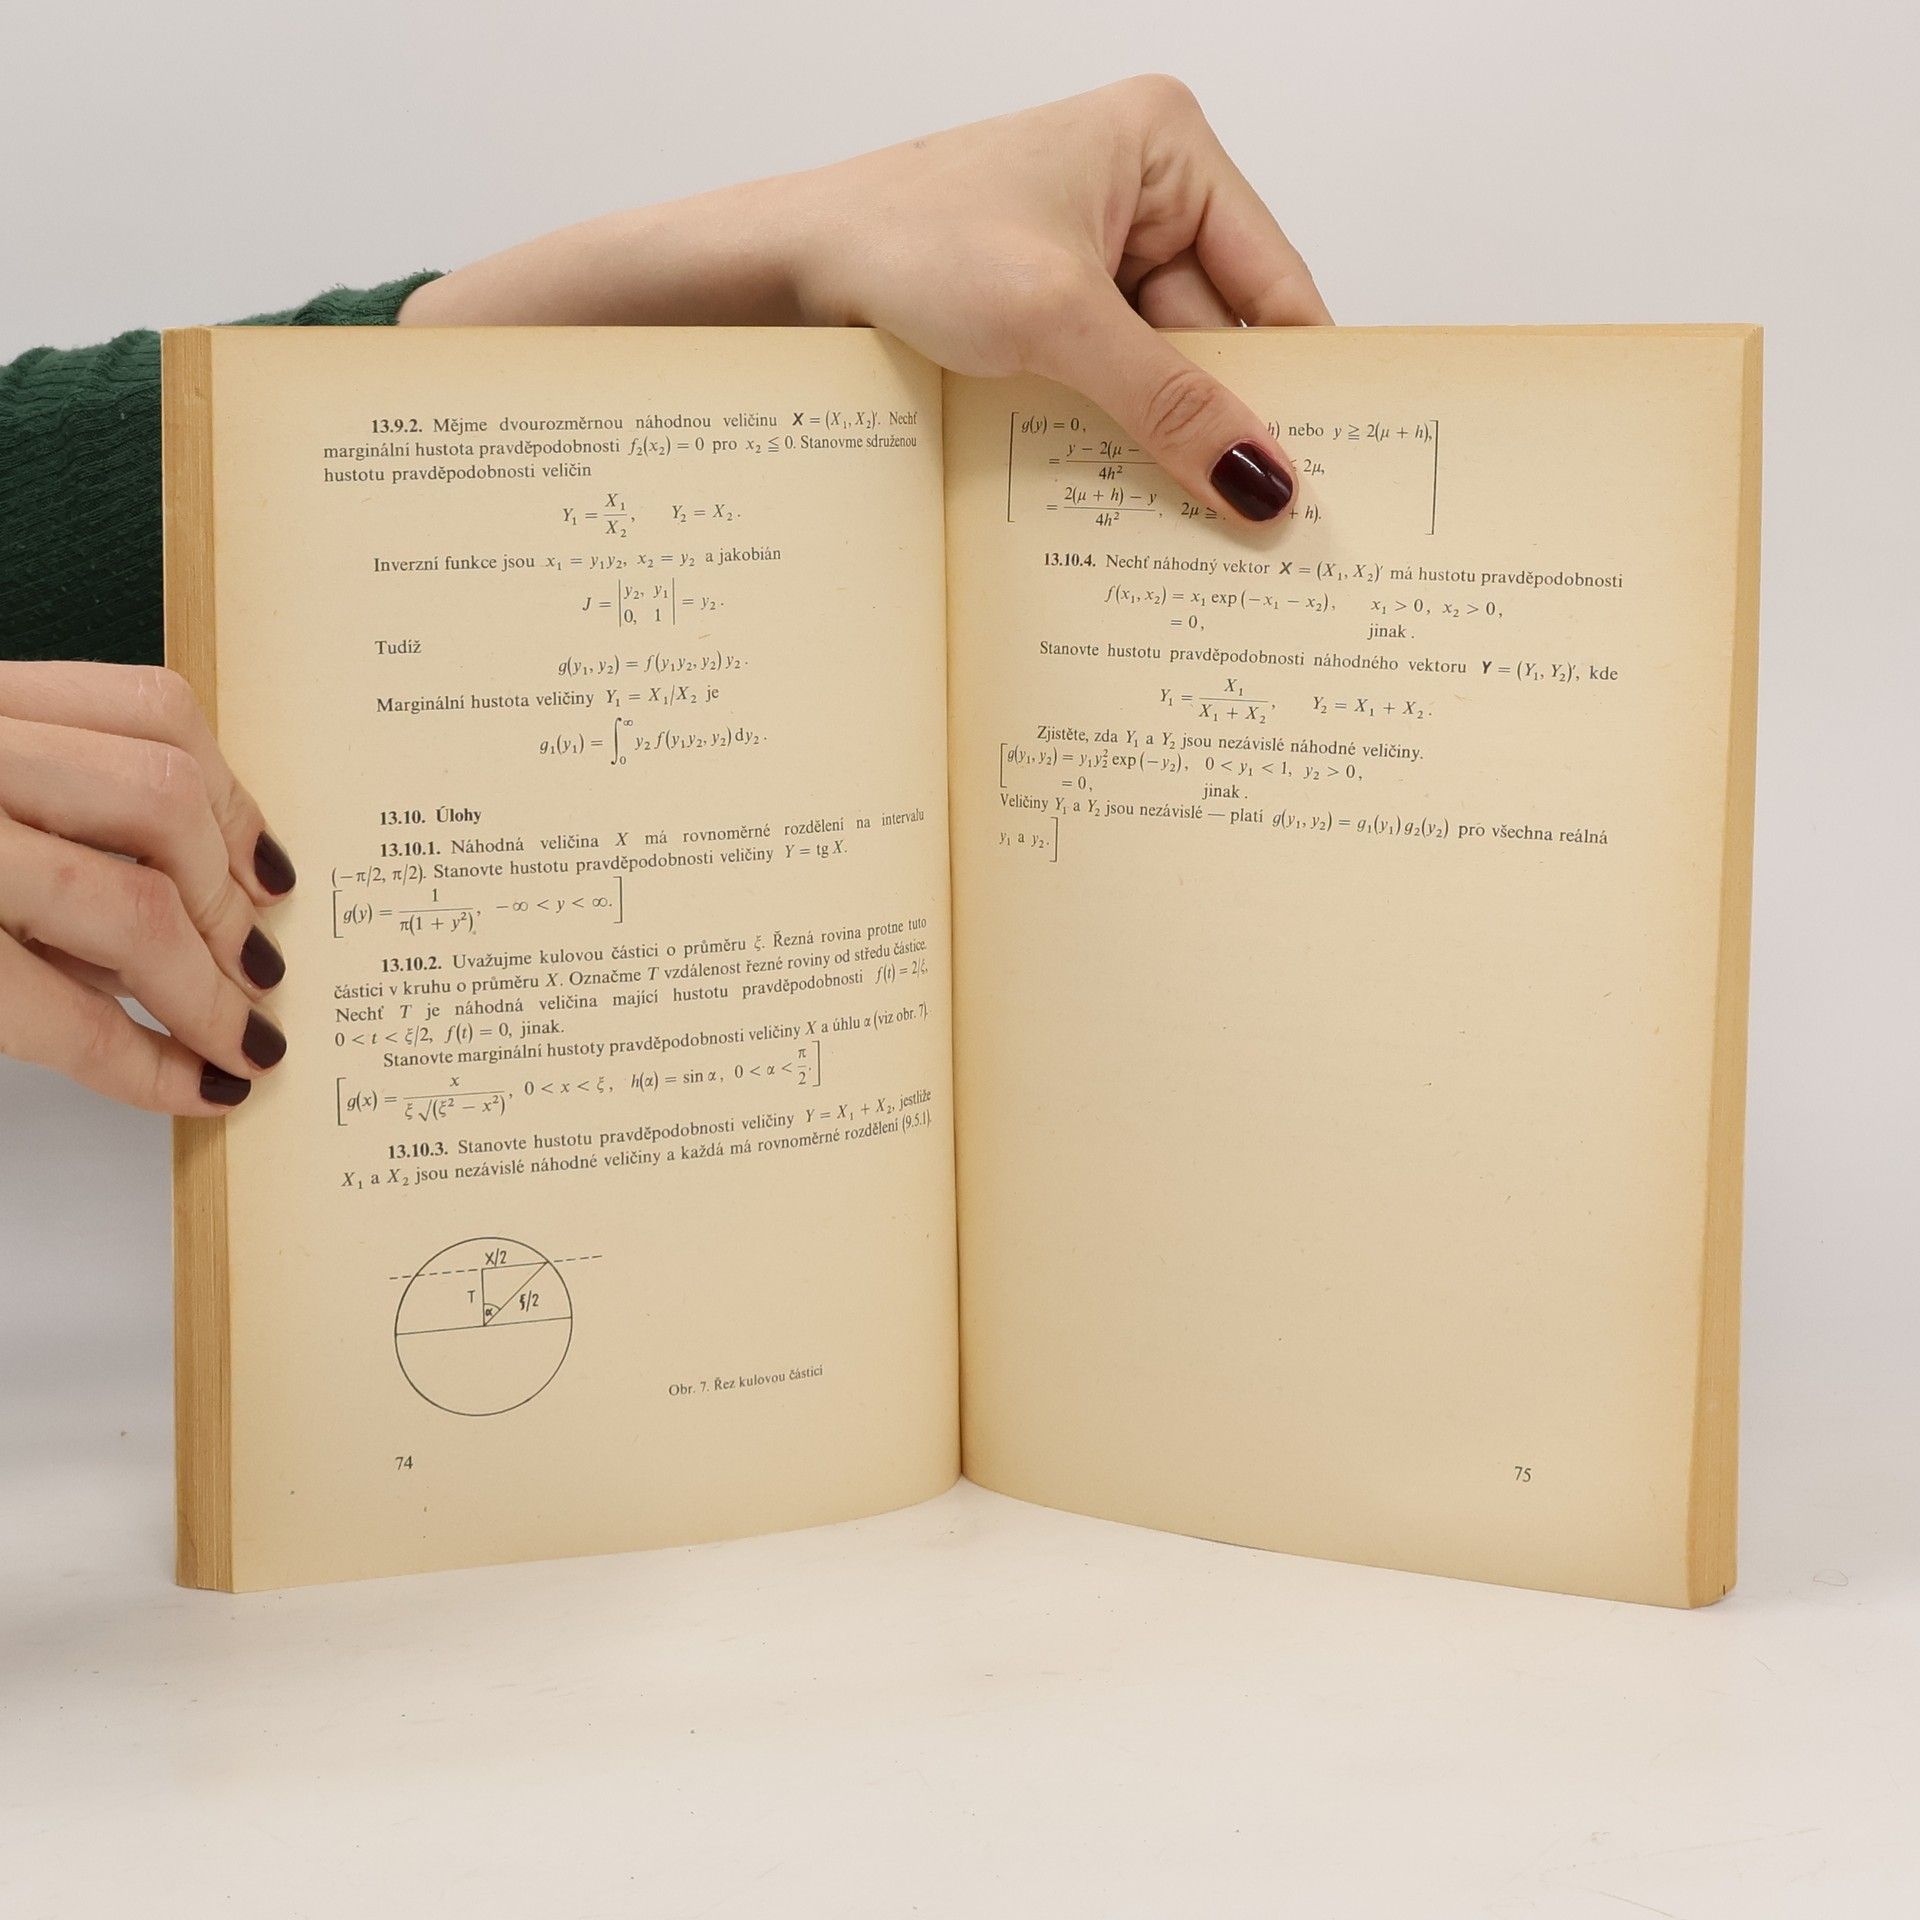 13.9.2. Mějme dvourozměrnou náhodnou veličinu X = (X₁, X₂)′. Nechť
marginální hustota pravděpodobnosti f₂(x₂) = 0 pro x₂ ≦ 0. Stanovme sdruženou
hustotu pravděpodobnosti veličin
Y₁ = X₁/X₂, Y₂ = X₂.
Inverzní funkce jsou x₁ = y₁y₂, x₂ = y₂ a jakobián
J = |y₂, y₁; 0, 1| = y₂.
Tudíž
g(y₁, y₂) = f(y₁y₂, y₂) y₂.
Marginální hustota veličiny Y₁ = X₁/X₂ je
g₁(y₁) = ∫₀^∞ y₂ f(y₁y₂, y₂) dy₂.
13.10. Úlohy
13.10.1. Náhodná veličina X má rovnoměrné rozdělení na intervalu
(−π/2, π/2). Stanovte hustotu pravděpodobnosti veličiny Y = tg X.
[g(y) = 1/(π(1 + y²)), −∞ < y < ∞.]
13.10.2. Uvažujme kulovou částici o průměru ξ. Řezná rovina protne tuto
částici v kruhu o průměru X. Označme T vzdálenost řezné roviny od středu částice.
Nechť T je náhodná veličina mající hustotu pravděpodobnosti f(t) = 2/ξ,
0 < t < ξ/2, f(t) = 0, jinak.
Stanovte marginální hustoty pravděpodobnosti veličiny X a úhlu α (viz obr. 7).
[g(x) = x/(ξ √(ξ² − x²)), 0 < x < ξ, h(α) = sin α, 0 < α < π/2.]
13.10.3. Stanovte hustotu pravděpodobnosti veličiny Y = X₁ + X₂, jestliže
X₁ a X₂ jsou nezávislé náhodné veličiny a každá má rovnoměrné rozdělení (9.5.1).
X/2
T
α
ξ/2
Obr. 7. Řez kulovou částicí
74
[g(y) = 0, h) nebo y ≧ 2(μ + h),
= y − 2(μ − / 4h² 2μ,
= (2(μ + h) − y)/4h², 2μ ≧ + h).]
13.10.4. Nechť náhodný vektor X = (X₁, X₂)′ má hustotu pravděpodobnosti
f(x₁, x₂) = x₁ exp (−x₁ − x₂), x₁ > 0, x₂ > 0,
= 0, jinak.
Stanovte hustotu pravděpodobnosti náhodného vektoru Y = (Y₁, Y₂)′, kde
Y₁ = X₁/(X₁ + X₂), Y₂ = X₁ + X₂.
Zjistěte, zda Y₁ a Y₂ jsou nezávislé náhodné veličiny.
[g(y₁, y₂) = y₁y₂² exp (−y₂), 0 < y₁ < 1, y₂ > 0,
= 0, jinak.
Veličiny Y₁ a Y₂ jsou nezávislé — platí g(y₁, y₂) = g₁(y₁) g₂(y₂) pro všechna reálná
y₁ a y₂.]
75